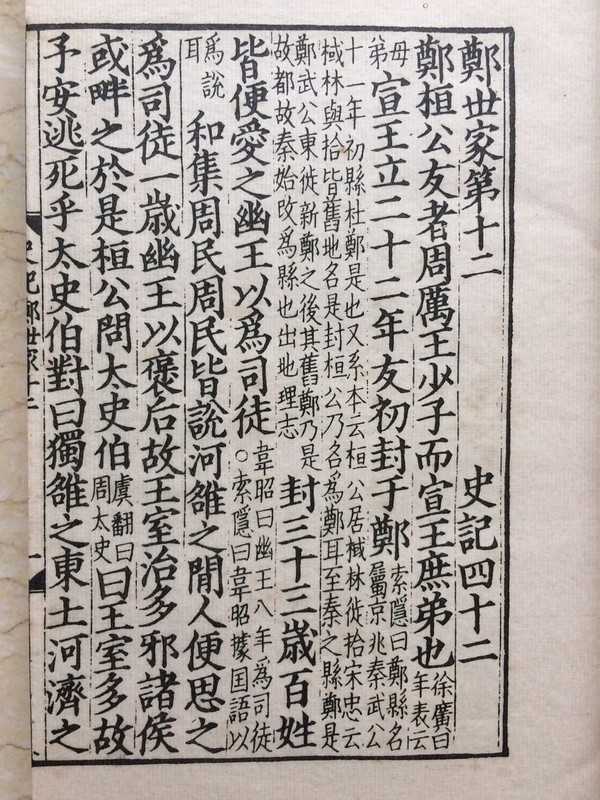 鄭世家第十二 史記四十二
鄭桓公友者周厲王少子而宣王庶弟也徐廣曰年表云
毋第宣王立二十二年友初封于鄭索隱曰鄭縣名屬京兆秦武公
十一年初縣杜鄭是也又系本云桓公居棫林徙拾宋忠云
棫林與拾皆舊地名是封桓公乃名為鄭耳至秦之縣鄭是
鄭武公東徙新鄭之後其舊鄭乃是故都故秦始改為縣也出地理志封三十三歲百姓
皆便愛之幽王以為司徒韋昭曰幽王八年為司徒○索隱曰韋昭據国語以
為說耳和集周民周民皆說河雒之間人便思之
為司徒一歲幽王以褒后故王室治多邪諸侯
或畔之於是桓公問太史伯虞翻曰周太史曰王室多故
予安逃死乎太史伯對曰獨雒之東土河濟之
史記鄭世家十二